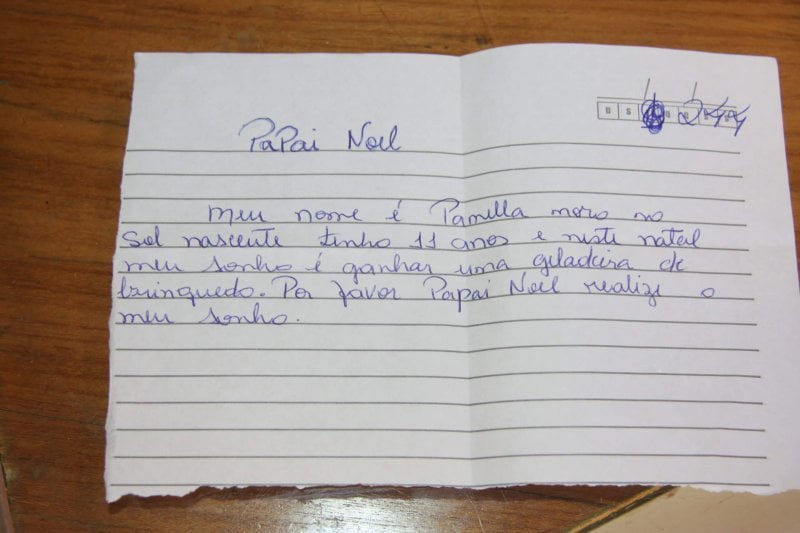 PaPai Noel
Meu nome é Pamilla moro no
Sol nascente tenho 11 anos e neste natal
meu sonho é ganhar uma geladeira de
brinquedo. Por favor Papai Noel realize o
meu sonho.